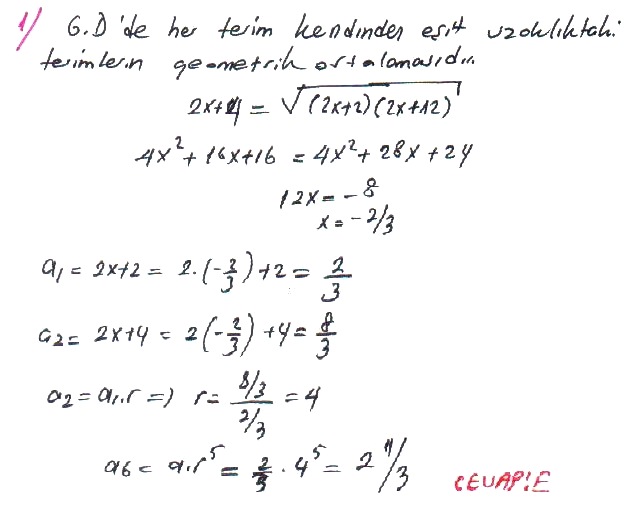 1) G.D 'de her terim kendinden eşit uzaklıktaki
terimlerin geometrik ortalamasıdır.
2x+4 = √(2x+2)(2x+12)
4x²+16x+16 = 4x²+28x+24
12x = -8
x = -2/3
a₁ = 2x+2 = 2.(-2/3)+2 = 2/3
a₂ = 2x+4 = 2(-2/3)+4 = 8/3
a₂ = a₁.r => r = (8/3)/(2/3) = 4
a₆ = a₁.r⁵ = 2/3 . 4⁵ = 2¹¹/3
CEVAP:E